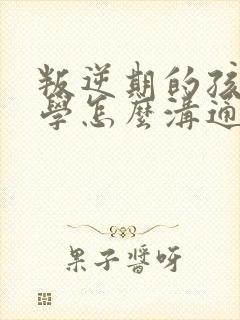 叛逆期的孩
學怎麼溝通
果子醬呀